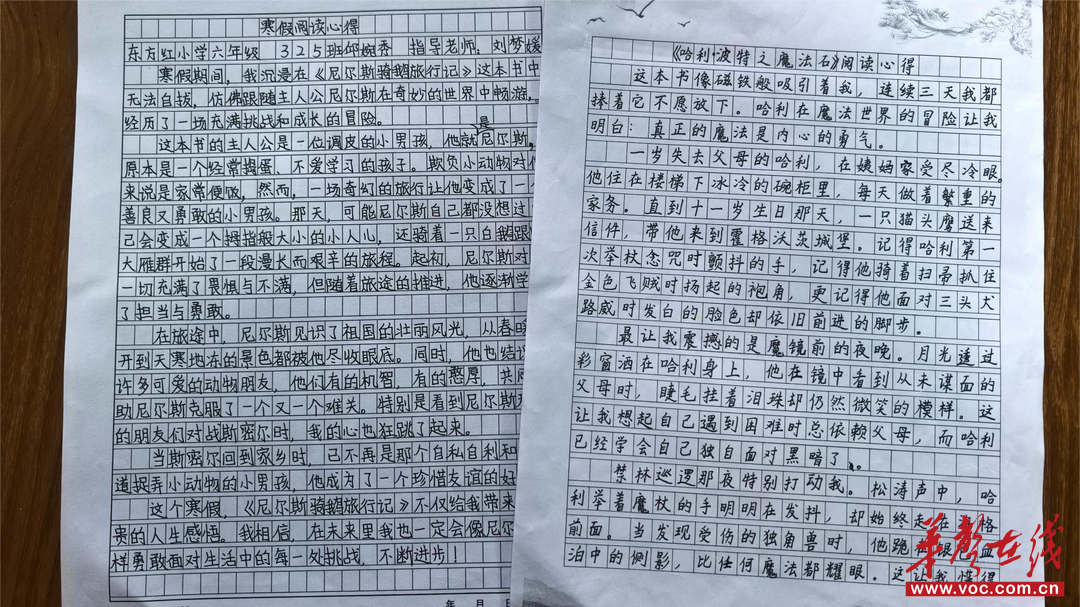 寒假阅读心得
东方红小学六年级 325班邱婉香 指导老师：刘梦媛
寒假期间，我沉浸在《尼尔斯骑鹅旅行记》这本书中
无法自拔，仿佛跟随主人公尼尔斯在奇妙的世界中畅游，
经历了一场充满挑战和成长的冒险。
这本书的主人公是一位调皮的小男孩，他就是尼尔斯，
原本是一个经常捣蛋、不爱学习的孩子。欺负小动物对他
来说是家常便饭，然而，一场奇幻的旅行让他变成了一个
善良又勇敢的小男孩。那天，可能尼尔斯自己都没想过
己会变成一个拇指般大小的小人儿，还骑着一只白鹅跟
大雁群开始了一段漫长而艰辛的旅程。起初，尼尔斯对
一切充满了畏惧与不满，但随着旅途的推进，他逐渐学
了担当与勇敢。
在旅途中，尼尔斯见识了祖国的壮丽风光，从春暖
开到天寒地冻的景色都被他尽收眼底。同时，他也结识
许多可爱的动物朋友，他们有的机智，有的憨厚，共同
助尼尔斯克服了一个又一个难关。特别是看到尼尔斯
的朋友们对战斯密尔时，我的心也狂跳了起来。
当斯密尔回到家乡时，已不再是那个自私自利和
道捉弄小动物的小男孩，他成为了一个珍惜友谊的好
这个寒假，《尼尔斯骑鹅旅行记》不仅给我带来
贵的人生感悟。我相信，在未来里我也一定会像尼尔
样勇敢面对生活中的每一处挑战，不断进步！
年 月 日
《哈利·波特之魔法石》阅读心得
这本书像磁铁般吸引着我，连续三天我都
捧着它不愿放下。哈利在魔法世界的冒险让我
明白：真正的魔法是内心的勇气。
一岁失去父母的哈利，在姨妈家受尽冷眼。
他住在楼梯下冰冷的碗柜里，每天做着繁重的
家务。直到十一岁生日那天，一只猫头鹰送来
信件，带他来到霍格沃茨城堡。记得哈利第一
次举杖念咒时颤抖的手，记得他骑着扫帚抓住
金色飞贼时扬起的袍角，更记得他面对三头犬
路威时发白的脸色却依旧前进的脚步。
最让我震撼的是魔镜前的夜晚。月光透过
彩窗洒在哈利身上，他在镜中看到从未谋面的
父母时，睫毛挂着泪珠却仍然微笑的模样。这
让我想起自己遇到困难时总依赖父母，而哈利
已经学会自己独自面对黑暗了。
禁林巡逻那夜特别打动我。松涛声中，哈
利举着魔杖的手明明在发抖，却始终走在 格
前面。当发现受伤的独角兽时，他跪 血
泊中的侧影，比任何魔法都耀眼。这让我懂得
华声在线
www.voc.com.cn